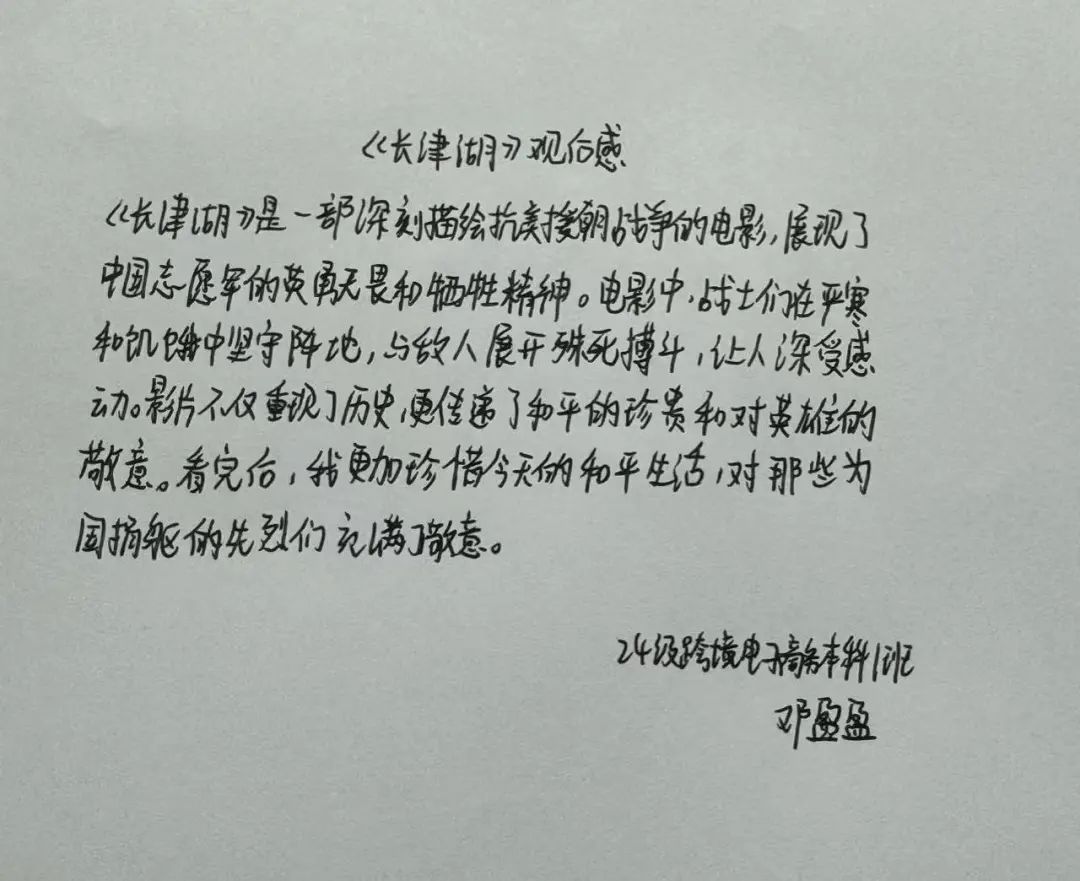 《长津湖》观后感
《长津湖》是一部深刻描绘抗美援朝战争的电影,展现了
中国志愿军的英勇无畏和牺牲精神。电影中,战士们在严寒
和饥饿中坚守阵地,与敌人展开殊死搏斗,让人深受感
动。影片不仅重现了历史,更传递了和平的珍贵和对英雄的
敬意。看完后,我更加珍惜今天的和平生活,对那些为
国捐躯的先烈们充满了敬意。
24级跨境电子商务本科1班
邓盈盈